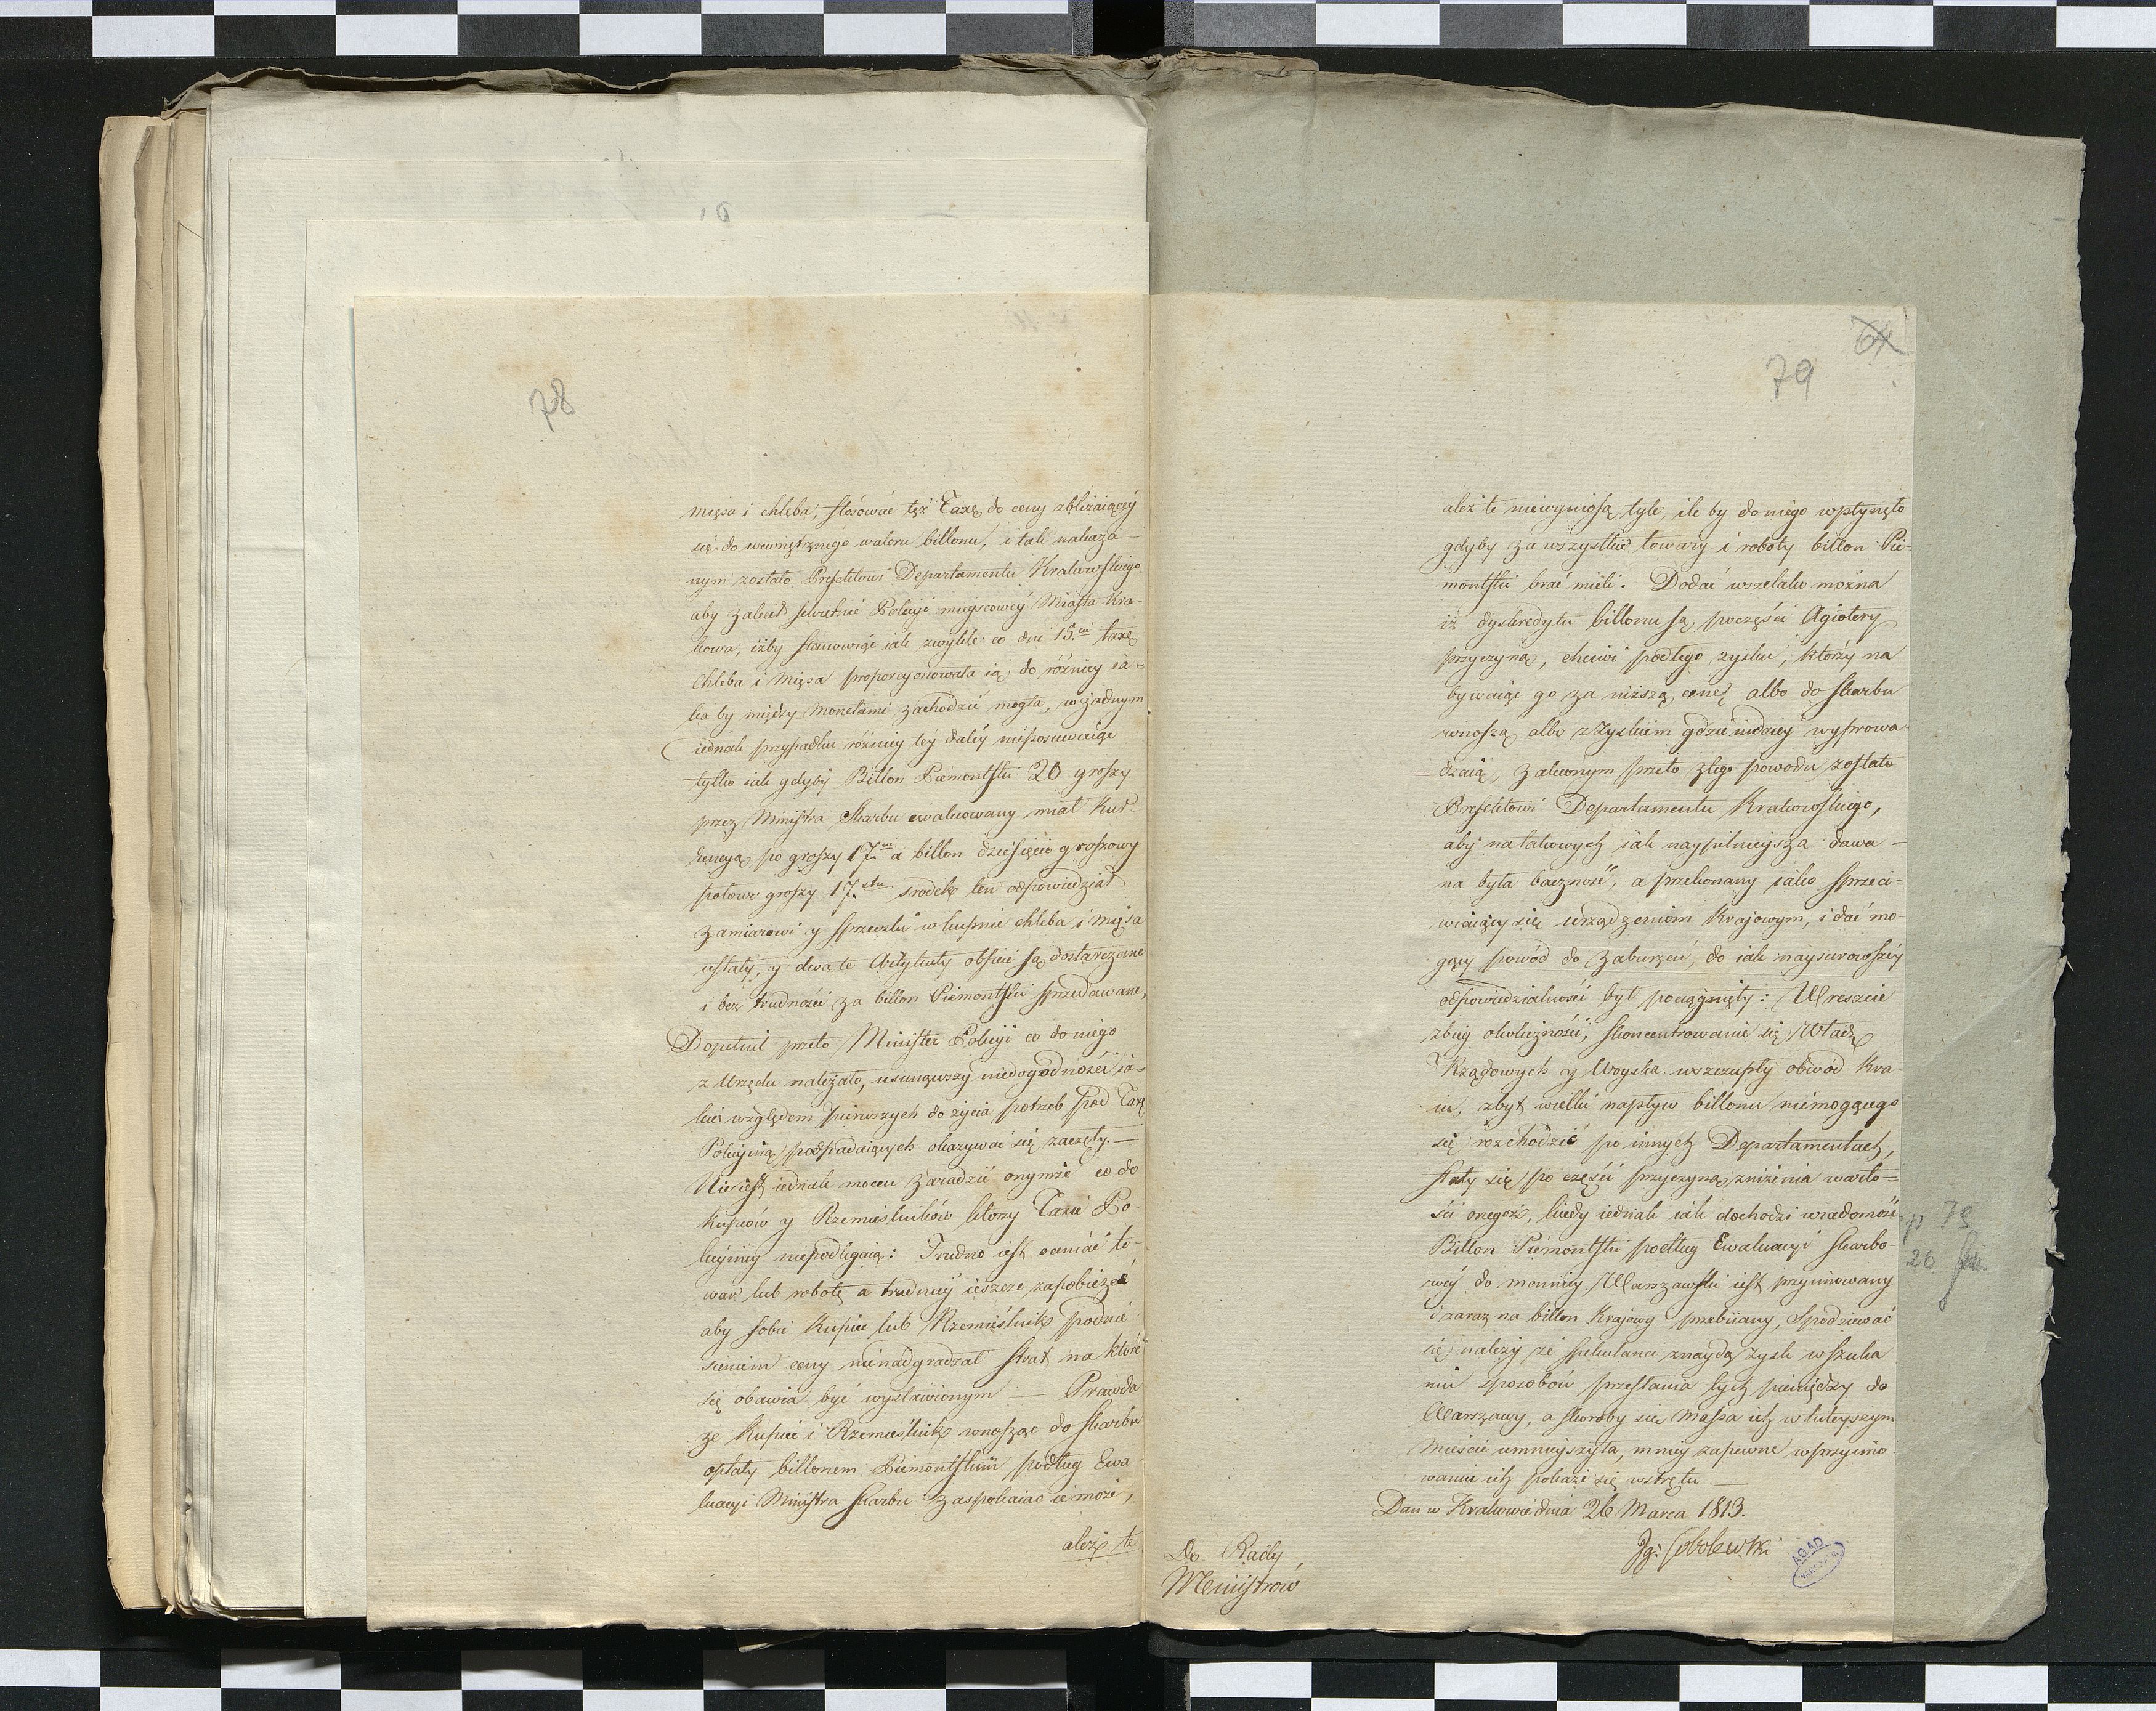 78
mięsa i chleba, stósować tęż Taxę do ceny zbliżaiącéy
się do wewnętrznego waloru billonu, i tak nakaza-
nym zostało Prefektowi Departamentu Krakowskiego
aby zalecił Policyi mieyscowéy Miasta Kra-
kowa, iżby stanowiąc iak zwykle co dni 15.ci taxę
Chleba i Mięsa proporcyonowała ią do różnicy ia-
ka by między Monetami zachodzić mogła, w żadnym
iednak przypadku różnicy téy daléy nieposuwaiąc
tylko iak gdyby Billon Piemontski 20 groszy
przez Ministra Skarbu ewaluowany miał Kur-
rencyą po groszy 17.cie a billon dziesięcio groszowy
połowę groszy 17.stu środek ten odpowiedział
zamiarowi y sprzeczki w kupnie chleba i mięsa
ustały, y dwa te Artykuły obficie są dostarczane
i bez trudności za billon Piemontski sprzedawane,
Dopełnił przeto Minister Policyi co do niego
z Urzędu należało, usunąwszy niedogodności ia-
kie względem pierwszych do życia potrzeb pod Taxę
Policyiną podpadaiących okazywać się zaczęły.—
Nie iest iednak mocen zaradzić onymże co do
Kupców y Rzemieślników którzy Taxie Po-
licyiney niepodlegaią: Trudno iest oceniać to-
war lub robotę a trudniéy ieszcze zapobiezéć
aby sobie Kupiec lub Rzemieślnik podnie-
sieniem ceny nienadgradzał strat na które
się obawia być wystawionym — Prawda
że Kupiec i Rzemieślnik wnosząc do Skarbu
opłaty billonem Piemontskim podług Ewa-
luacyi Ministra Skarbu zaspokaiać ie może,
aleź te
64
79
aleź te niewyniosą tyle, ile by do niego wpłynęło
gdyby za wszystkie towary i roboty billon Pie-
montski brać mieli. Dodać wszelako można
iż dyskredytu billonu są poczęści Agiotery
przyczyną, chciwi podłego zysku, którzy na
bywaiąc go za niższą cenę, albo do Skarbu
wnoszą albo z Zyskiem gdzie indziey wyprowa-
dzaią, zaleconym przeto z tego powodu zostało
Prefektowi Departamentu Krakowskiego,
aby na takowych iak naypilnieysza dawa-
na była baczność, a przekonany iako sprzeci-
wiaiący się urządzeniom Krajowym, i dać mo-
gący powód do zaburzeń, do iak naysurowszéy
odpowiedzialności był pociągnięty: Wreszcie
zbieg okoliczności, skoncentrowanie się Władz
Rządowych y Woyska w szczupły obwód Kra-
iu, zbyt wielki napływ billonu niemogącego
się rozchodzić po innych Departamentach,
stały się po części przyczyną zniżenia warto-
ści onegoż, kiedy iednak iak dochodzi wiadomość
Billon Piemontski podług Ewaluacyi Skarbo-
wéy do mennicy Warszawski iest przyimowany
i zaraz na billon Krajowy przebiiany, Spodziewać
się należy że spekulanci znaydą zysk w szuka
niu sposobów przesłania tych pieniędzy do
Warszawy, a skoroby się Massa ich w tuteyszym
Mieście umnieyszyła, mniéy zapewne w przyimo-
waniu ich pokaże się wstrętu —
Dan w Krakowie dnia 26 Marca 1813.
Ig: Sobolewski
Do Rady
Ministrów
p 79
26
AGAD